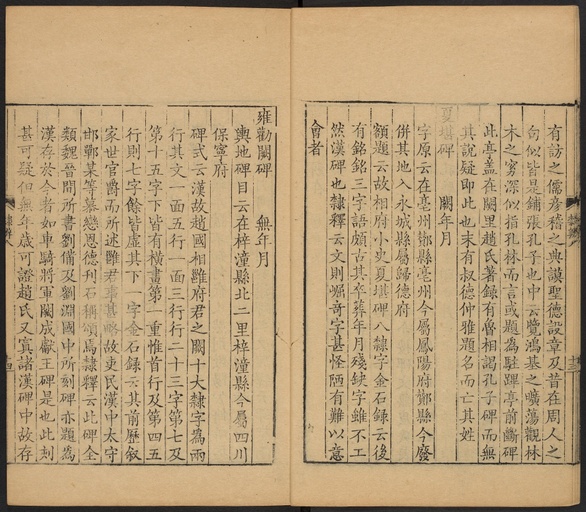 有訪之儒彦稽之典謨聖德設章及昔在周人之
句似皆是鋪張孔子也中云覽鴻基之曠蕩觀林
木之窈深似指孔林而言或題為駐蹕亭前斷碑
此亭蓋在闕里趙氏著録有魯相謁孔子碑而無
其說疑即此也末有叔德仲雅題名而亡其姓
夏堪碑 闕年月
字原云在亳州鄼縣亳州今屬鳳陽府鄼縣今廢
併其地入永城縣屬歸德府
額題云故相府小史夏堪碑八隸字金石録云後
有銘銘三字語頗古其卒葬年月殘缺字雖不工
然漢碑也隸釋云文則崛奇字甚怪陋有難以意
會者
雍勸闕碑 無年月
輿地碑目云在梓潼縣北二里梓潼縣今屬四川
保寧府
碑式云漢故趙國相雝府君之闕十大隸字為兩
行其文一面五行一面三行行二十三字第七及
第十五字下皆有橫書第一重惟首行及第四五
行則七字餘皆虛其下一字金石録云其前歷叙
家世官爵而所述雝君事甚略故吏民漢中太守
邯鄲某等慕戀恩德刋石稱頌焉隸釋云此碑全
類魏晉間所書劉備及劉淵國中所刻碑亦題為
漢存於今者如車騎將軍闕成獻王碑是也此刻
甚可疑但無年歲可證趙氏又寘諸漢碑中故存
隸辨八